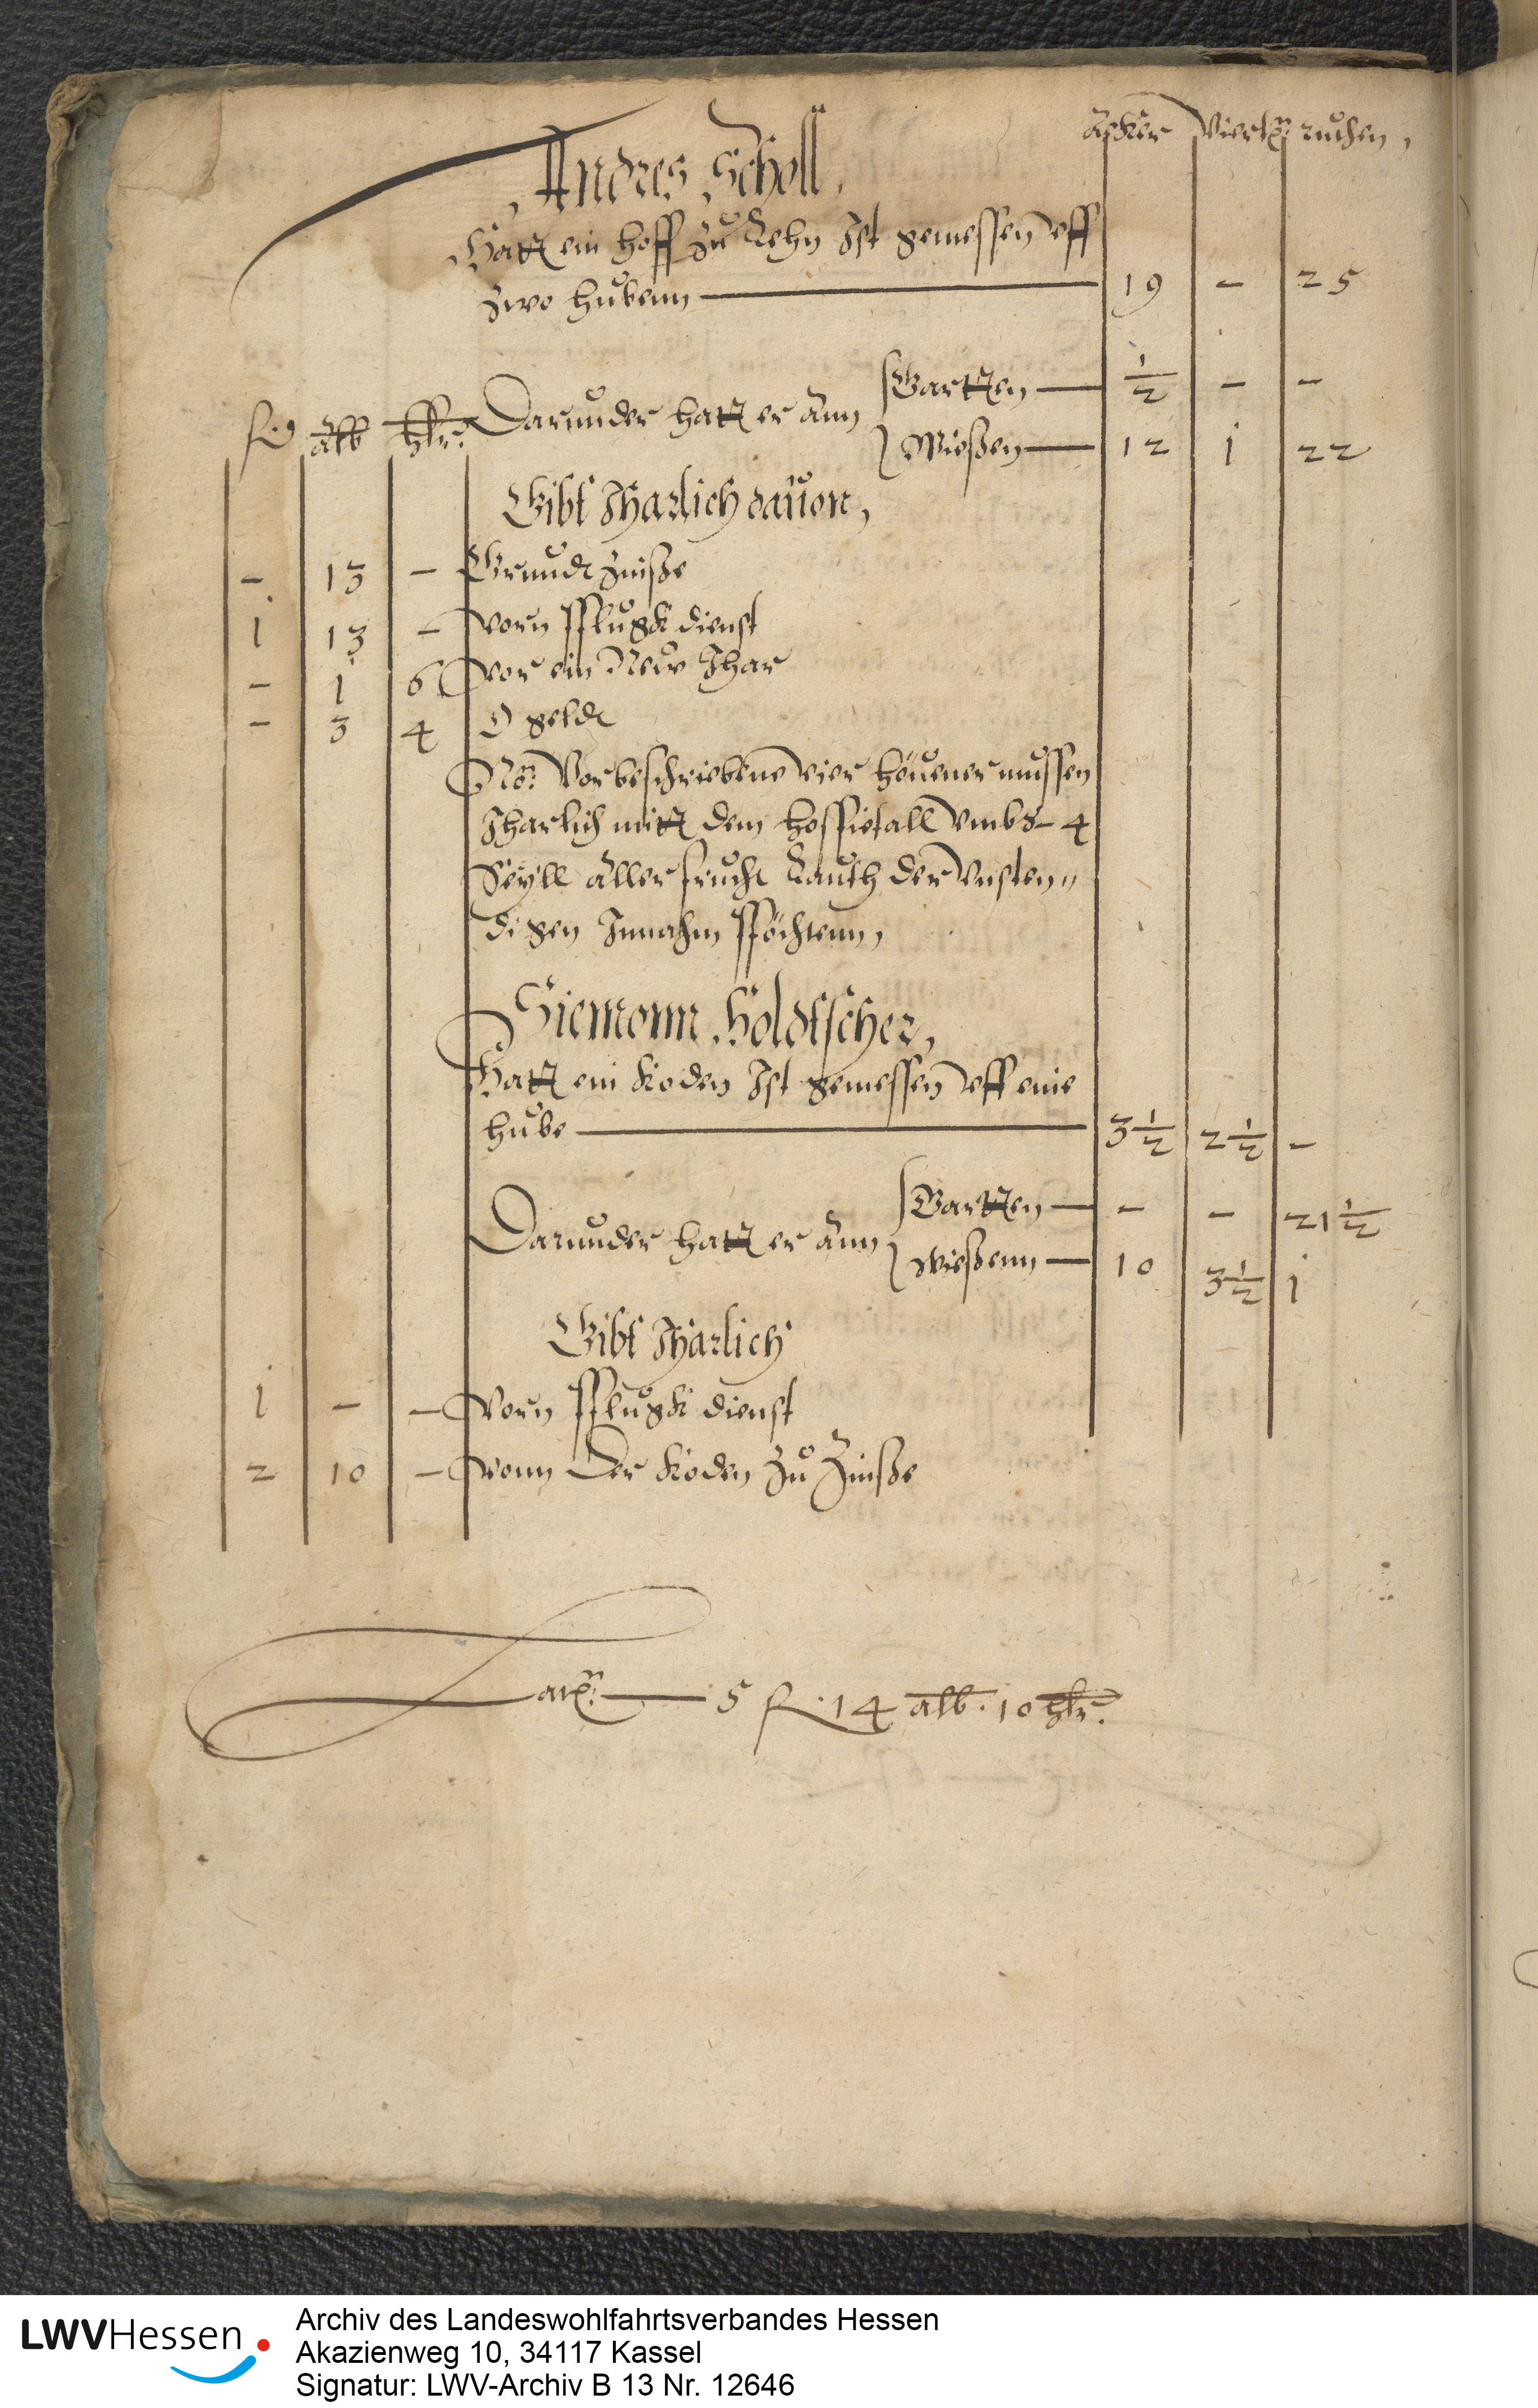 Äcker Viertẽ: ruthen,
Andres Scholl,
Hatt ein hoff zu Lehn Ist gemessen vff
zwo hubenn — 19 - 25
Darunder hatt er ann Gartten — 1/2 - -
Wießen — 12 1 22
fl. alb hlr.
Gibt Jharlich dauon,
- 13 - Grundt Zinße
1 13 - vorn Pflugk dienst
- 1 6 vor ein New Jhar
- 3 4 geldt
Nõ: Vorbeschriebene vier höuener mussen
Jharlich mitt dem hoffiefall vmbs 4
Theyll aller frucht Lauth der Vnsten„
digen Innahm Pföchtenn,
Siemonn Holdtscher,
Hatt ein Koden Ist gemessen vff eine
hube — 3 1/2 2 1/2 -
Darunder hatt er ann Gartten — - - 21 1/2
Wießenn — 10 3 1/2 1
Gibt Jharlich
1 - - Vorn Pflugk dienst
2 10 - vonn der Koden Zu Zinße
Latę: — 5 fl. 14 alb. 10 hlr.
LWVHessen
Archiv des Landeswohlfahrtsverbandes Hessen
Akazienweg 10, 34117 Kassel
Signatur: LWV-Archiv B 13 Nr. 12646